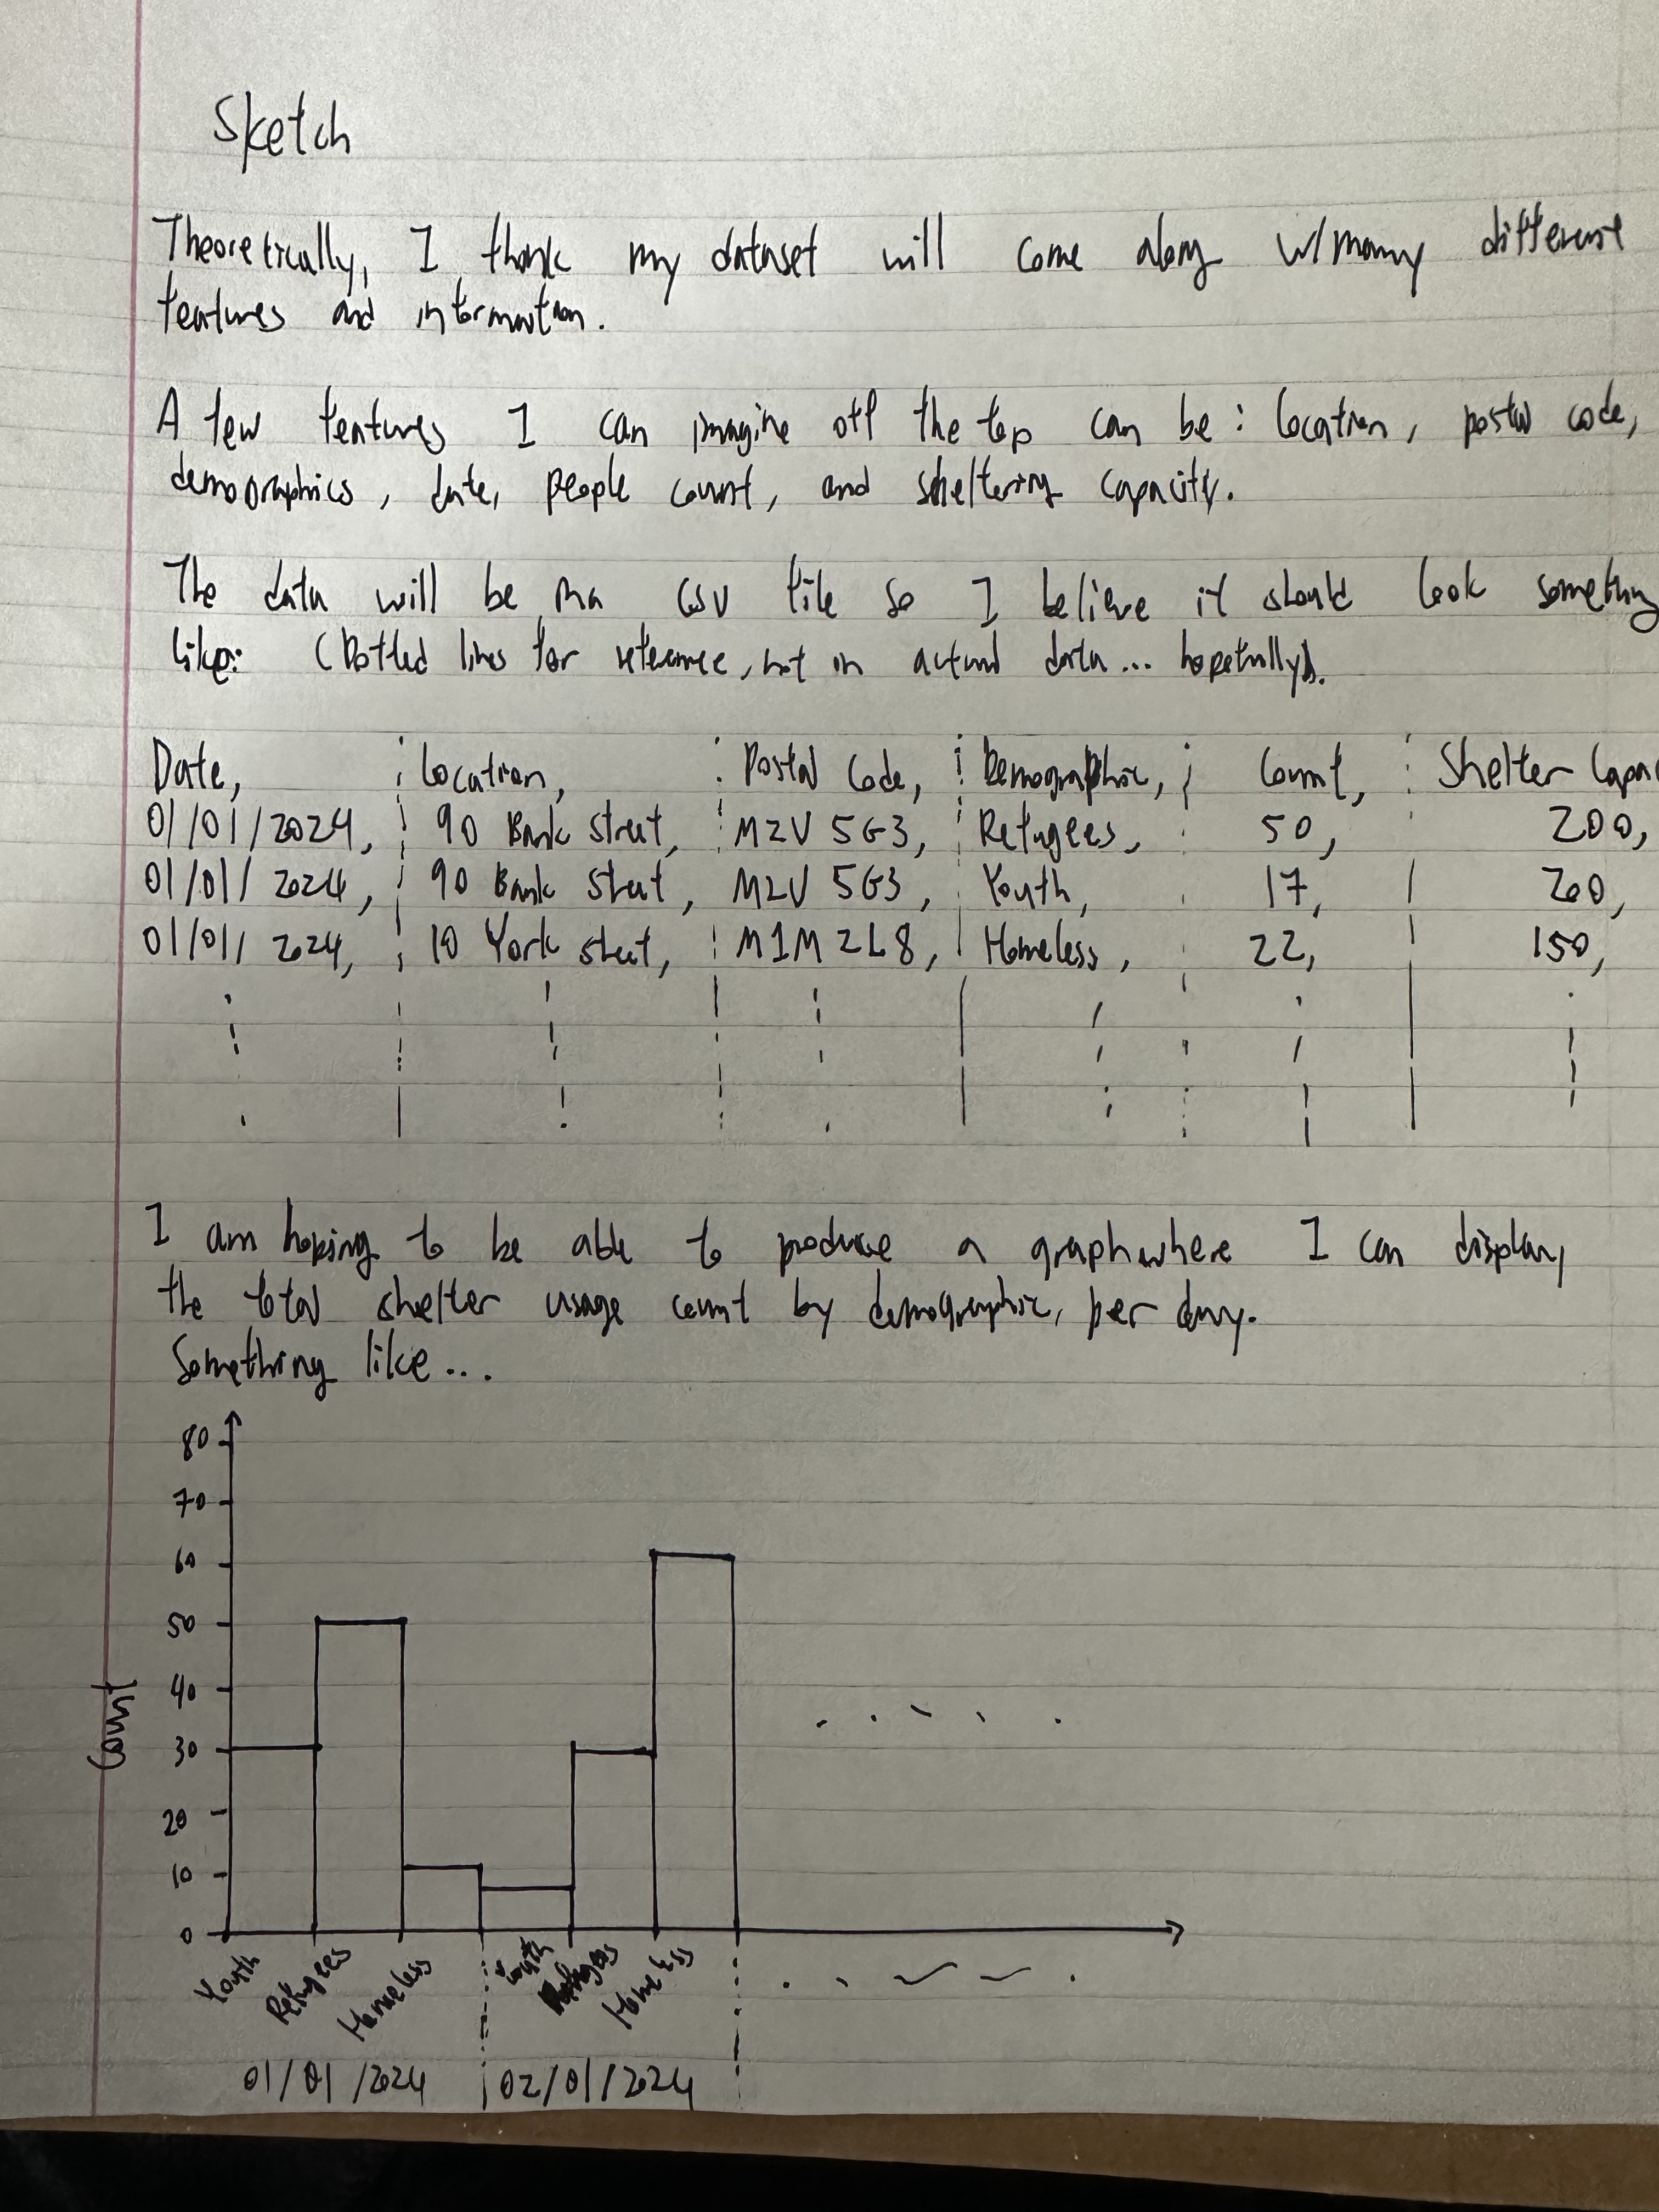 Sketch
Theoretically, I think my dataset will come along w/many different
features and information.
A few features I can imagine off the top can be: location, postal code,
demographics, date, people count, and sheltering capacity.
The data will be in a csv file so I believe it should look something
like: (Dotted lines for reference, not in actual data... hopefully).
Date, Location, Postal Code, Demographic, Count, Shelter Capac
01/01/2024, 90 Bank Street, M2V 5G3, Refugees, 50, 200,
01/01/2024, 90 Bank Street, M2V 5G3, Youth, 17, 200,
01/01/2024, 10 York Street, M1M 2L8, Homeless, 22, 150,
I am hoping to be able to produce a graph where I can display
the total shelter usage count by demographic, per day.
Something like...
80
70
60
50
40
30
20
10
0
Count
Youth Refugees Homeless Youth Refugees Homeless
01/01/2024 02/01/2024